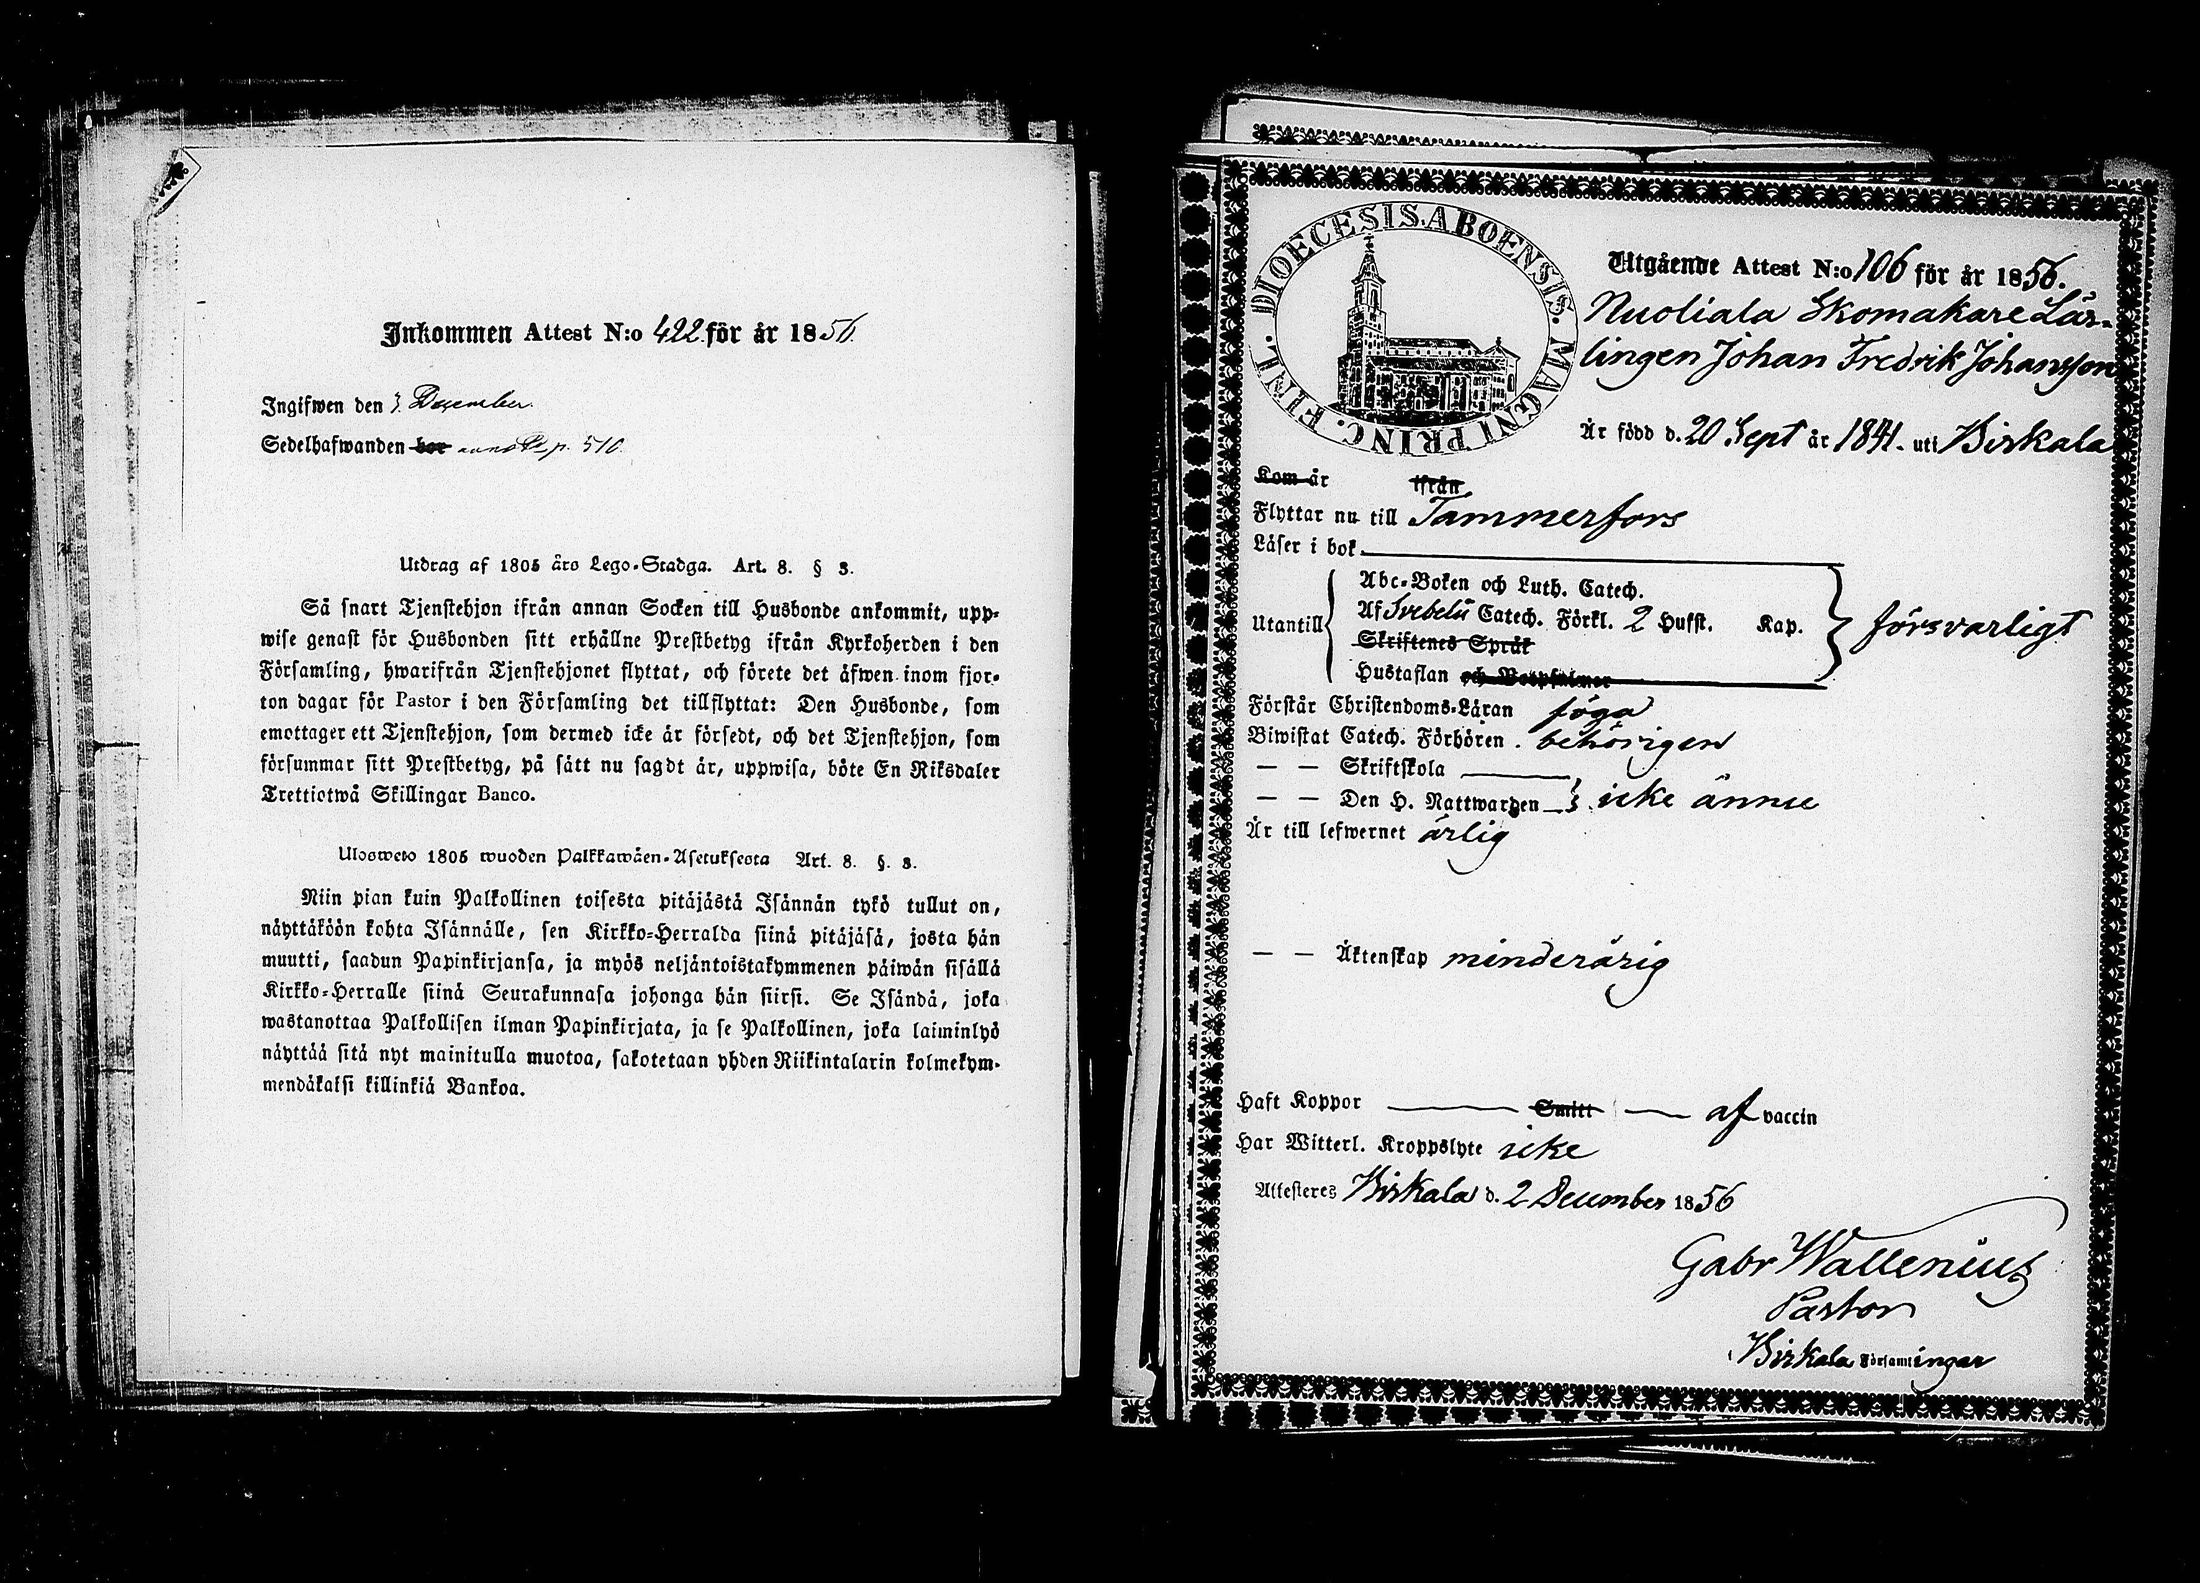 Inkommen Attest N:o 422 för år 1856.
Ingifwen den 3 December
Sedelhafwanden bor p. 510.
Utdrag af 1805 års Lego-Stadga. Art. 8. § 3.
Så snart Tjenstehjon ifrån annan Socken till Husbonde ankommit, upp-
wise genast för Husbonden sitt erhållne Prestbetyg ifrån Kyrkoherden i den
Församling, hwarifrån Tjenstehjonet flyttat, och förete det äfwen inom fjor-
ton dagar för Pastor i den Församling det tillflyttat: Den Husbonde, som
emottager ett Tjenstehjon, som dermed icke är försedt, och det Tjenstehjon, som
försummar sitt Prestbetyg, på sätt nu sagdt är, uppwisa, böte En Riksdaler
Trettiotwå Skillingar Banco.
Ulosweto 1805 wuoden Palkkawäen-Asetuksesta Art. 8. §. 3.
Niin pian kuin Palkollinen toisesta pitäjästä Isännän tykö tullut on,
näyttäköön kohta Isännälle, sen Kirkko-Herralda siinä pitäjäsä, josta hän
muutti, saadun Papinkirjansa, ja myös neljäntoistakymmenen päiwän sisällä
Kirkko-Herralle siinä Seurakunnasa johonga hän siirsi. Se Isändä, joka
wastanottaa Palkollisen ilman Papinkirjata, ja se Palkollinen, joka laiminlyö
näyttää sitä nyt mainitulla muotoa, sakotetaan yhden Riikintalarin kolmekym-
mendäkaksi killinkiä Bankoa.
DIOECESIS ABOENSIS. MAGNI PRINC. FINL.
Utgående Attest N:o 106 för år 1856.
Nuoliala Skomakare Lär-
lingen Johan Fredrik Johansson
Är född d. 20 Sept år 1841. uti Birkala
Kom år ifrån
Flyttar nu till Tammerfors
Läser i bok
Abc-Boken och Luth. Catech.
Utantill Af Svebelii Catech. Förkl. 2 Hufst. Kap. försvarligt
Skriftenes Språk
Hustaflan och Botpsalmer
Förstår Christendoms-Läran föga
Biwistat Catech. Förhören. behörigen
— — Skriftskola
— — Den H. Nattwarden icke ännu
Är till lefwernet ärlig
— — Äktenskap minderårig
Haft Koppor Smitt af vaccin
Har Witterl. Kroppslyte icke
Attesteres Birkala d. 2 December 1856
Gabr Wallenius
Pastor
Birkala Församlingar